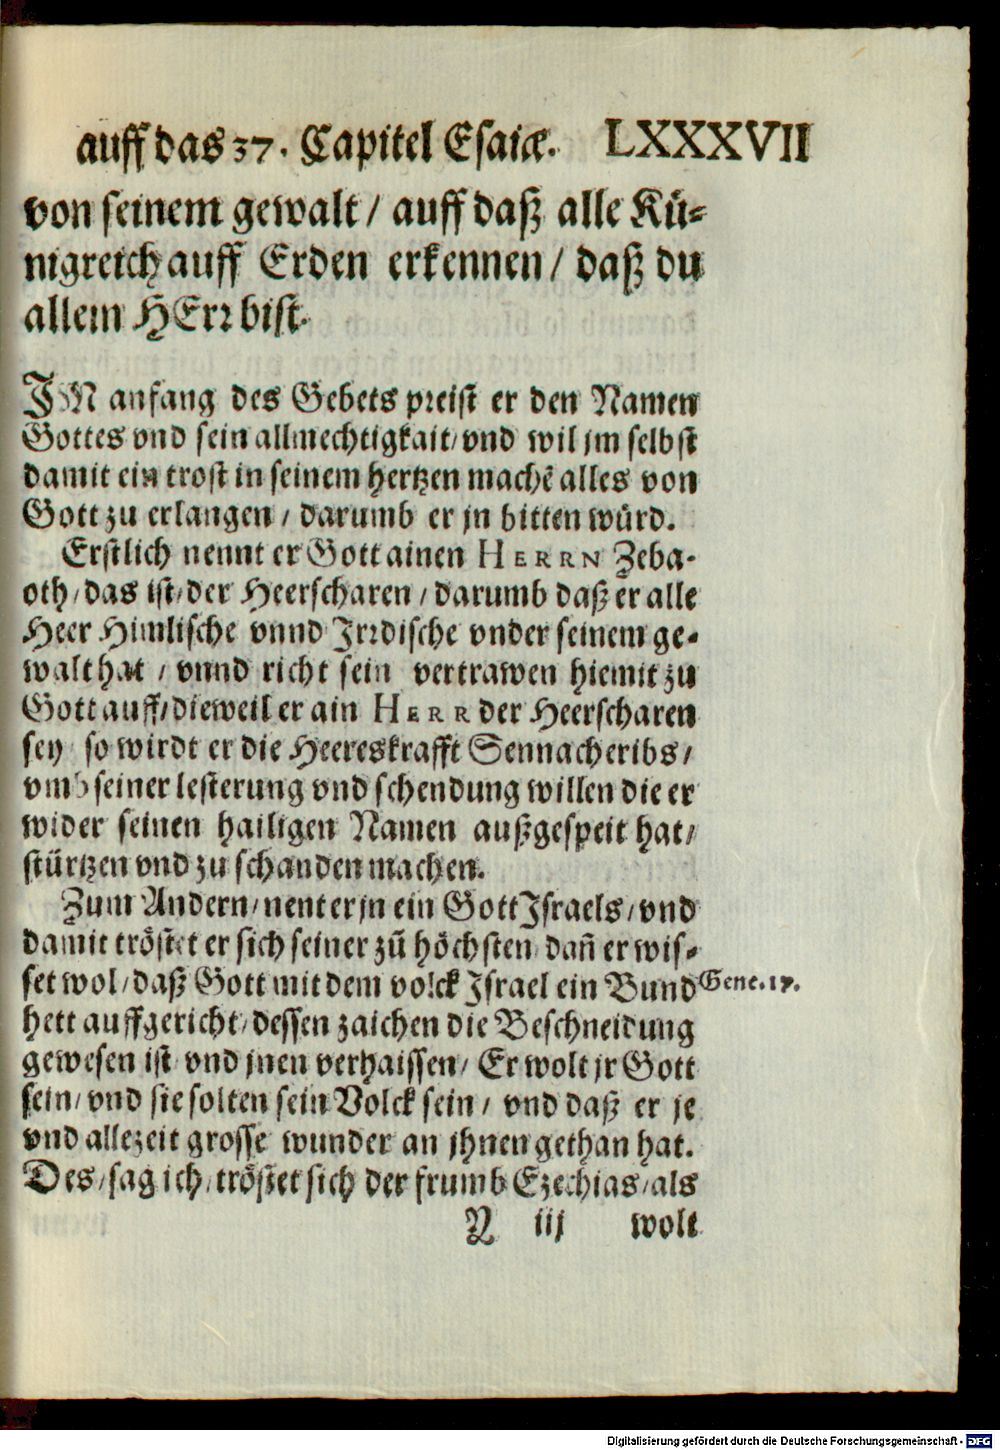 auff das 37. Capitel Esaiæ. LXXXVII
von seinem gewalt / auff daß alle Kü-
nigreich auff Erden erkennen / daß du
allein HErr bist.
IN anfang des Gebets preist er den Namen
Gottes vnd sein allmechtigkait / vnd wil jm selbst
damit ein trost in seinem hertzen machē alles von
Gott zu erlangen / darumb er jn bitten würd.
Erstlich nennt er Gott ainen HERRN Zeba-
oth / das ist / der Heerscharen / darumb daß er alle
Heer Himlische vnnd Irrdische vnder seinem ge-
walt hat / vnnd richt sein vertrawen hiemit zu
Gott auff / dieweil er ain HERR der Heerscharen
sey so wirdt er die Heereskrafft Sennacheribs /
vmb seiner lesterung vnd schendung willen die er
wider seinen hailigen Namen außgespeit hat /
stürtzen vnd zu schanden machen.
Zum Andern / nent er jn ein Gott Israels / vnd
damit tröstet er sich seiner zū höchsten dañ er wis-
set wol / daß Gott mit dem volck Israel ein Bund Gene. 17.
hett auffgericht / dessen zaichen die Beschneidung
gewesen ist vnd jnen verhaissen / Er wolt jr Gott
sein / vnd sie solten sein Volck sein / vnd daß er je
vnd allezeit grosse wunder an jhnen gethan hat.
Des / sag ich / tröstet sich der frumb Ezechias / als
N iij wolt
Digitalisierung gefördert durch die Deutsche Forschungsgemeinschaft - DFG